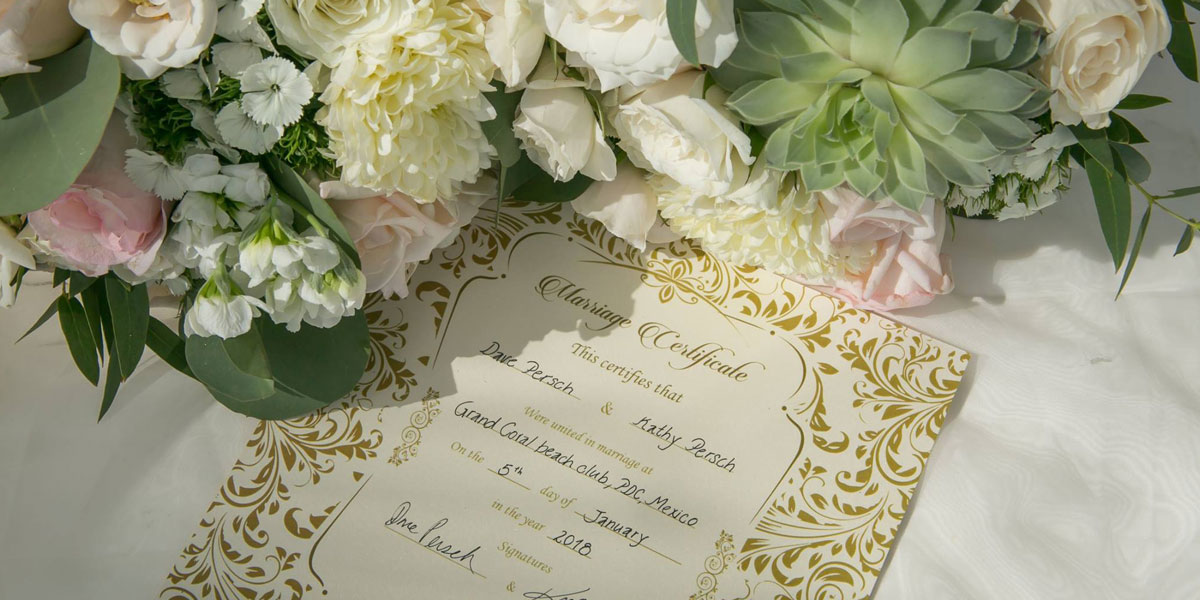 Marriage Certificate
This certifies that
Dave Persch & Kathy Persch
Were united in marriage at
Grand Coral beach club, PDC, Mexico
On the 5th day of January
in the year 2018
Signatures
Dave Persch &